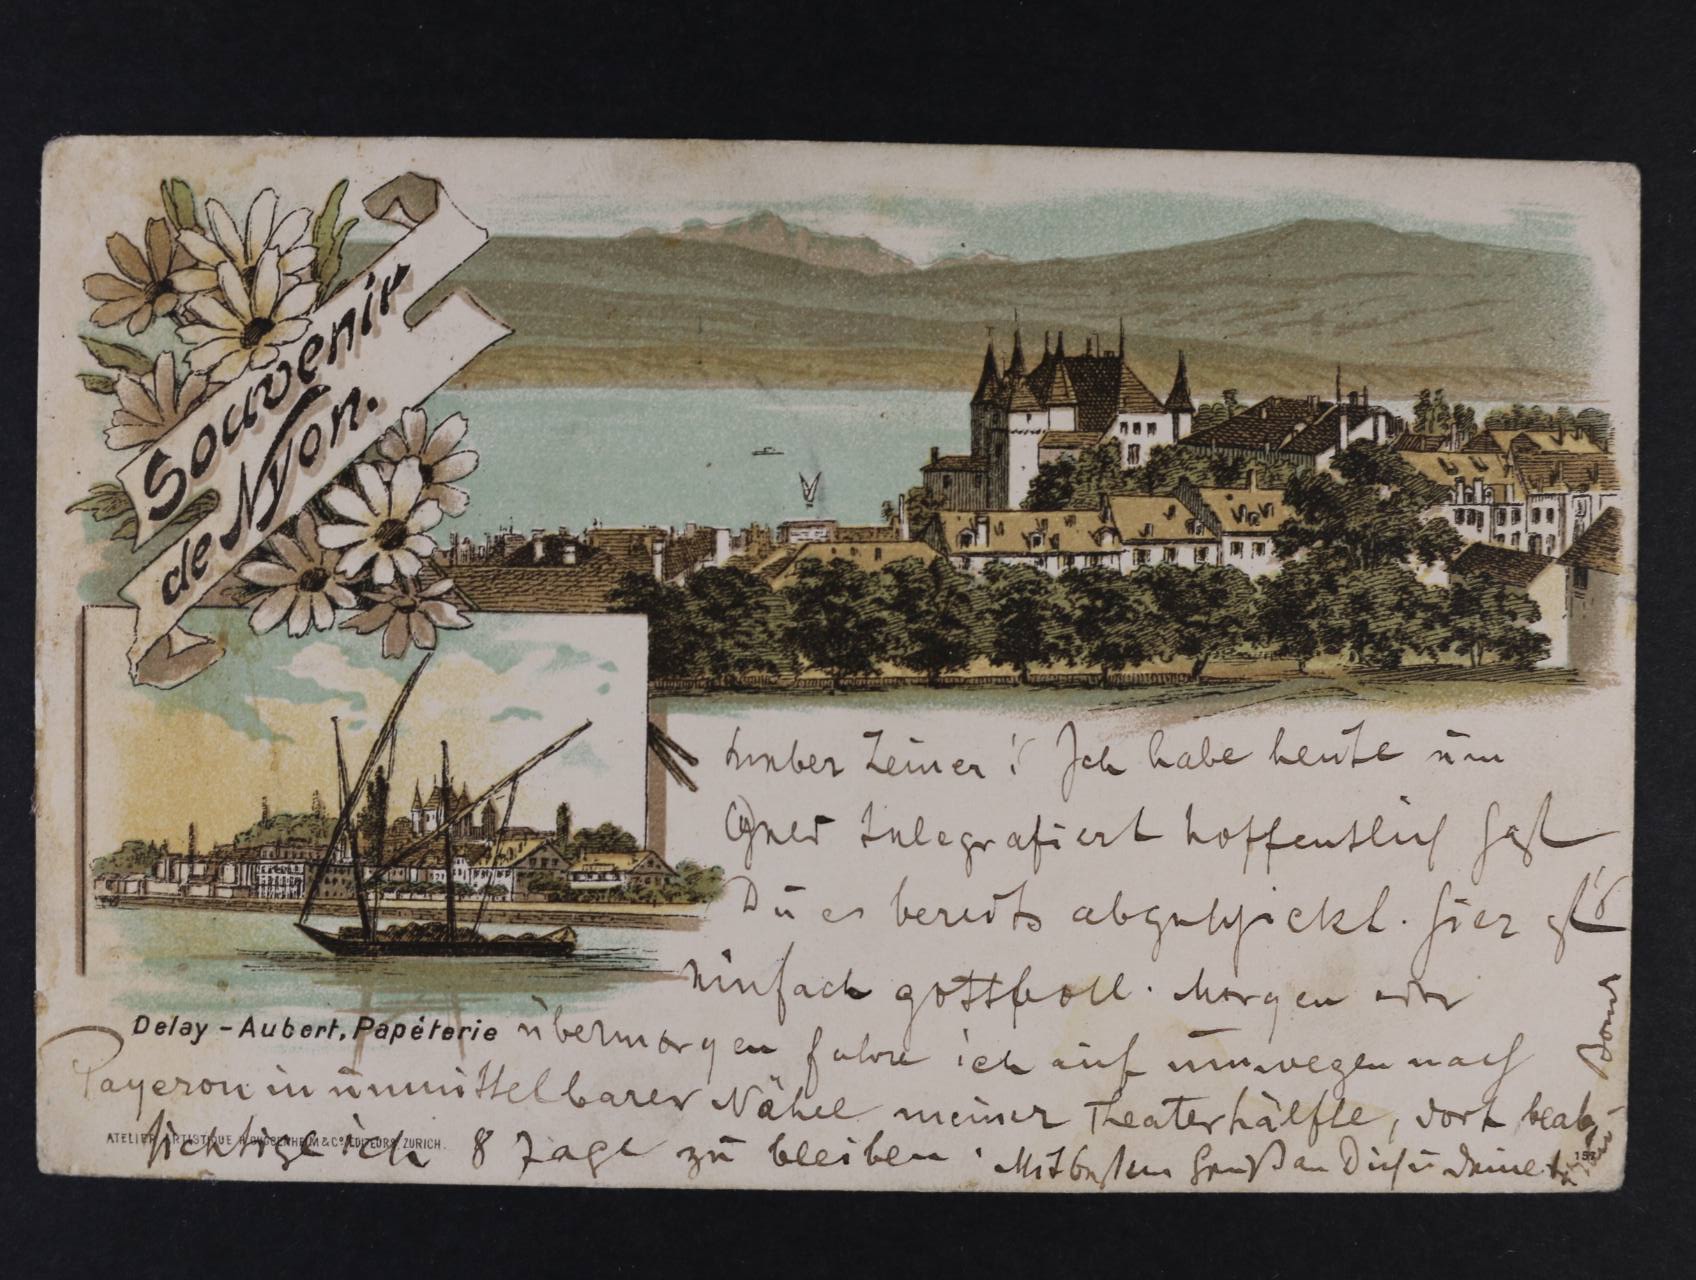 Souvenir
de Nyon.
Lieber Zeiner! Ich habe heute um
telegrafiert hoffentlich hast
Du es bereits abgeschickt. Hier ist's
einfach gottvoll. Morgen oder
Delay - Aubert, Papéterie
übermorgen fahre ich auf umwegen nach
Payeron in unmittelbarer Nähe meiner Theaterhälfte, dort beab-
sichtige ich 8 Tage zu bleiben. Mit bestem Gruß an Dich u Deine
ATELIER ARTISTIQUE H. GUGGENHEIM & Cº. EDITEURS, ZURICH.